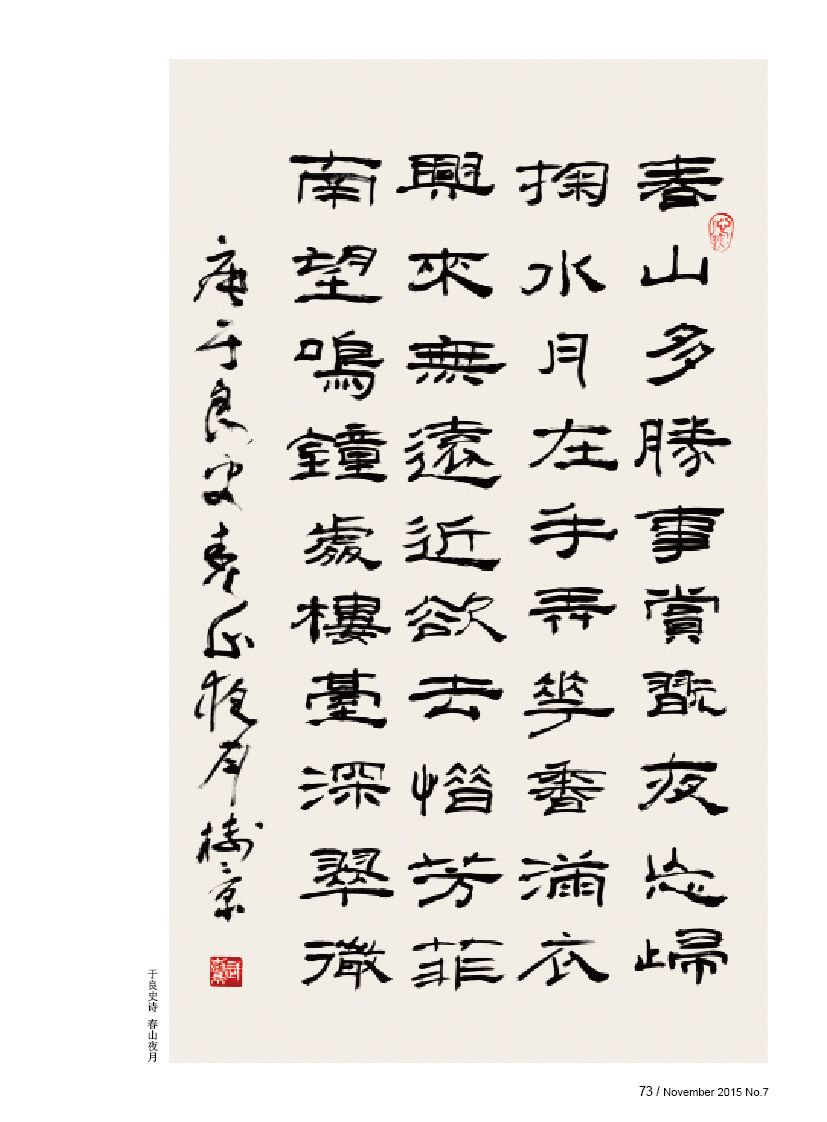 春山多勝事賞翫夜忘歸
掬水月在手弄華香滿衣
興來無遠近欲去惜芳菲
南望鳴鐘處樓臺深翠微
唐于良史春山夜月樹
于良史诗 春山夜月
73 / November 2015 No.7